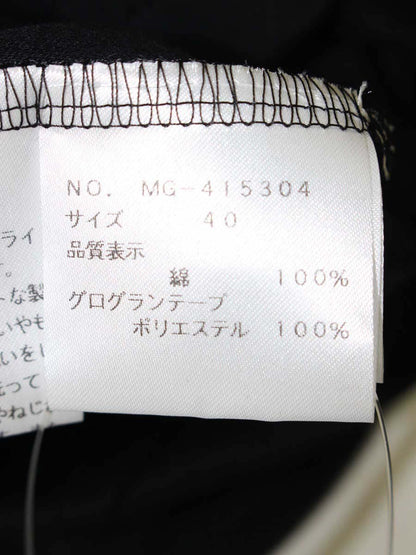 NO. MG-415304
サイズ 40
品質表示
綿 100%
グログランテープ
ポリエステル 100%
ライ
。
な製
いやも
いをし
洗って
やねじ